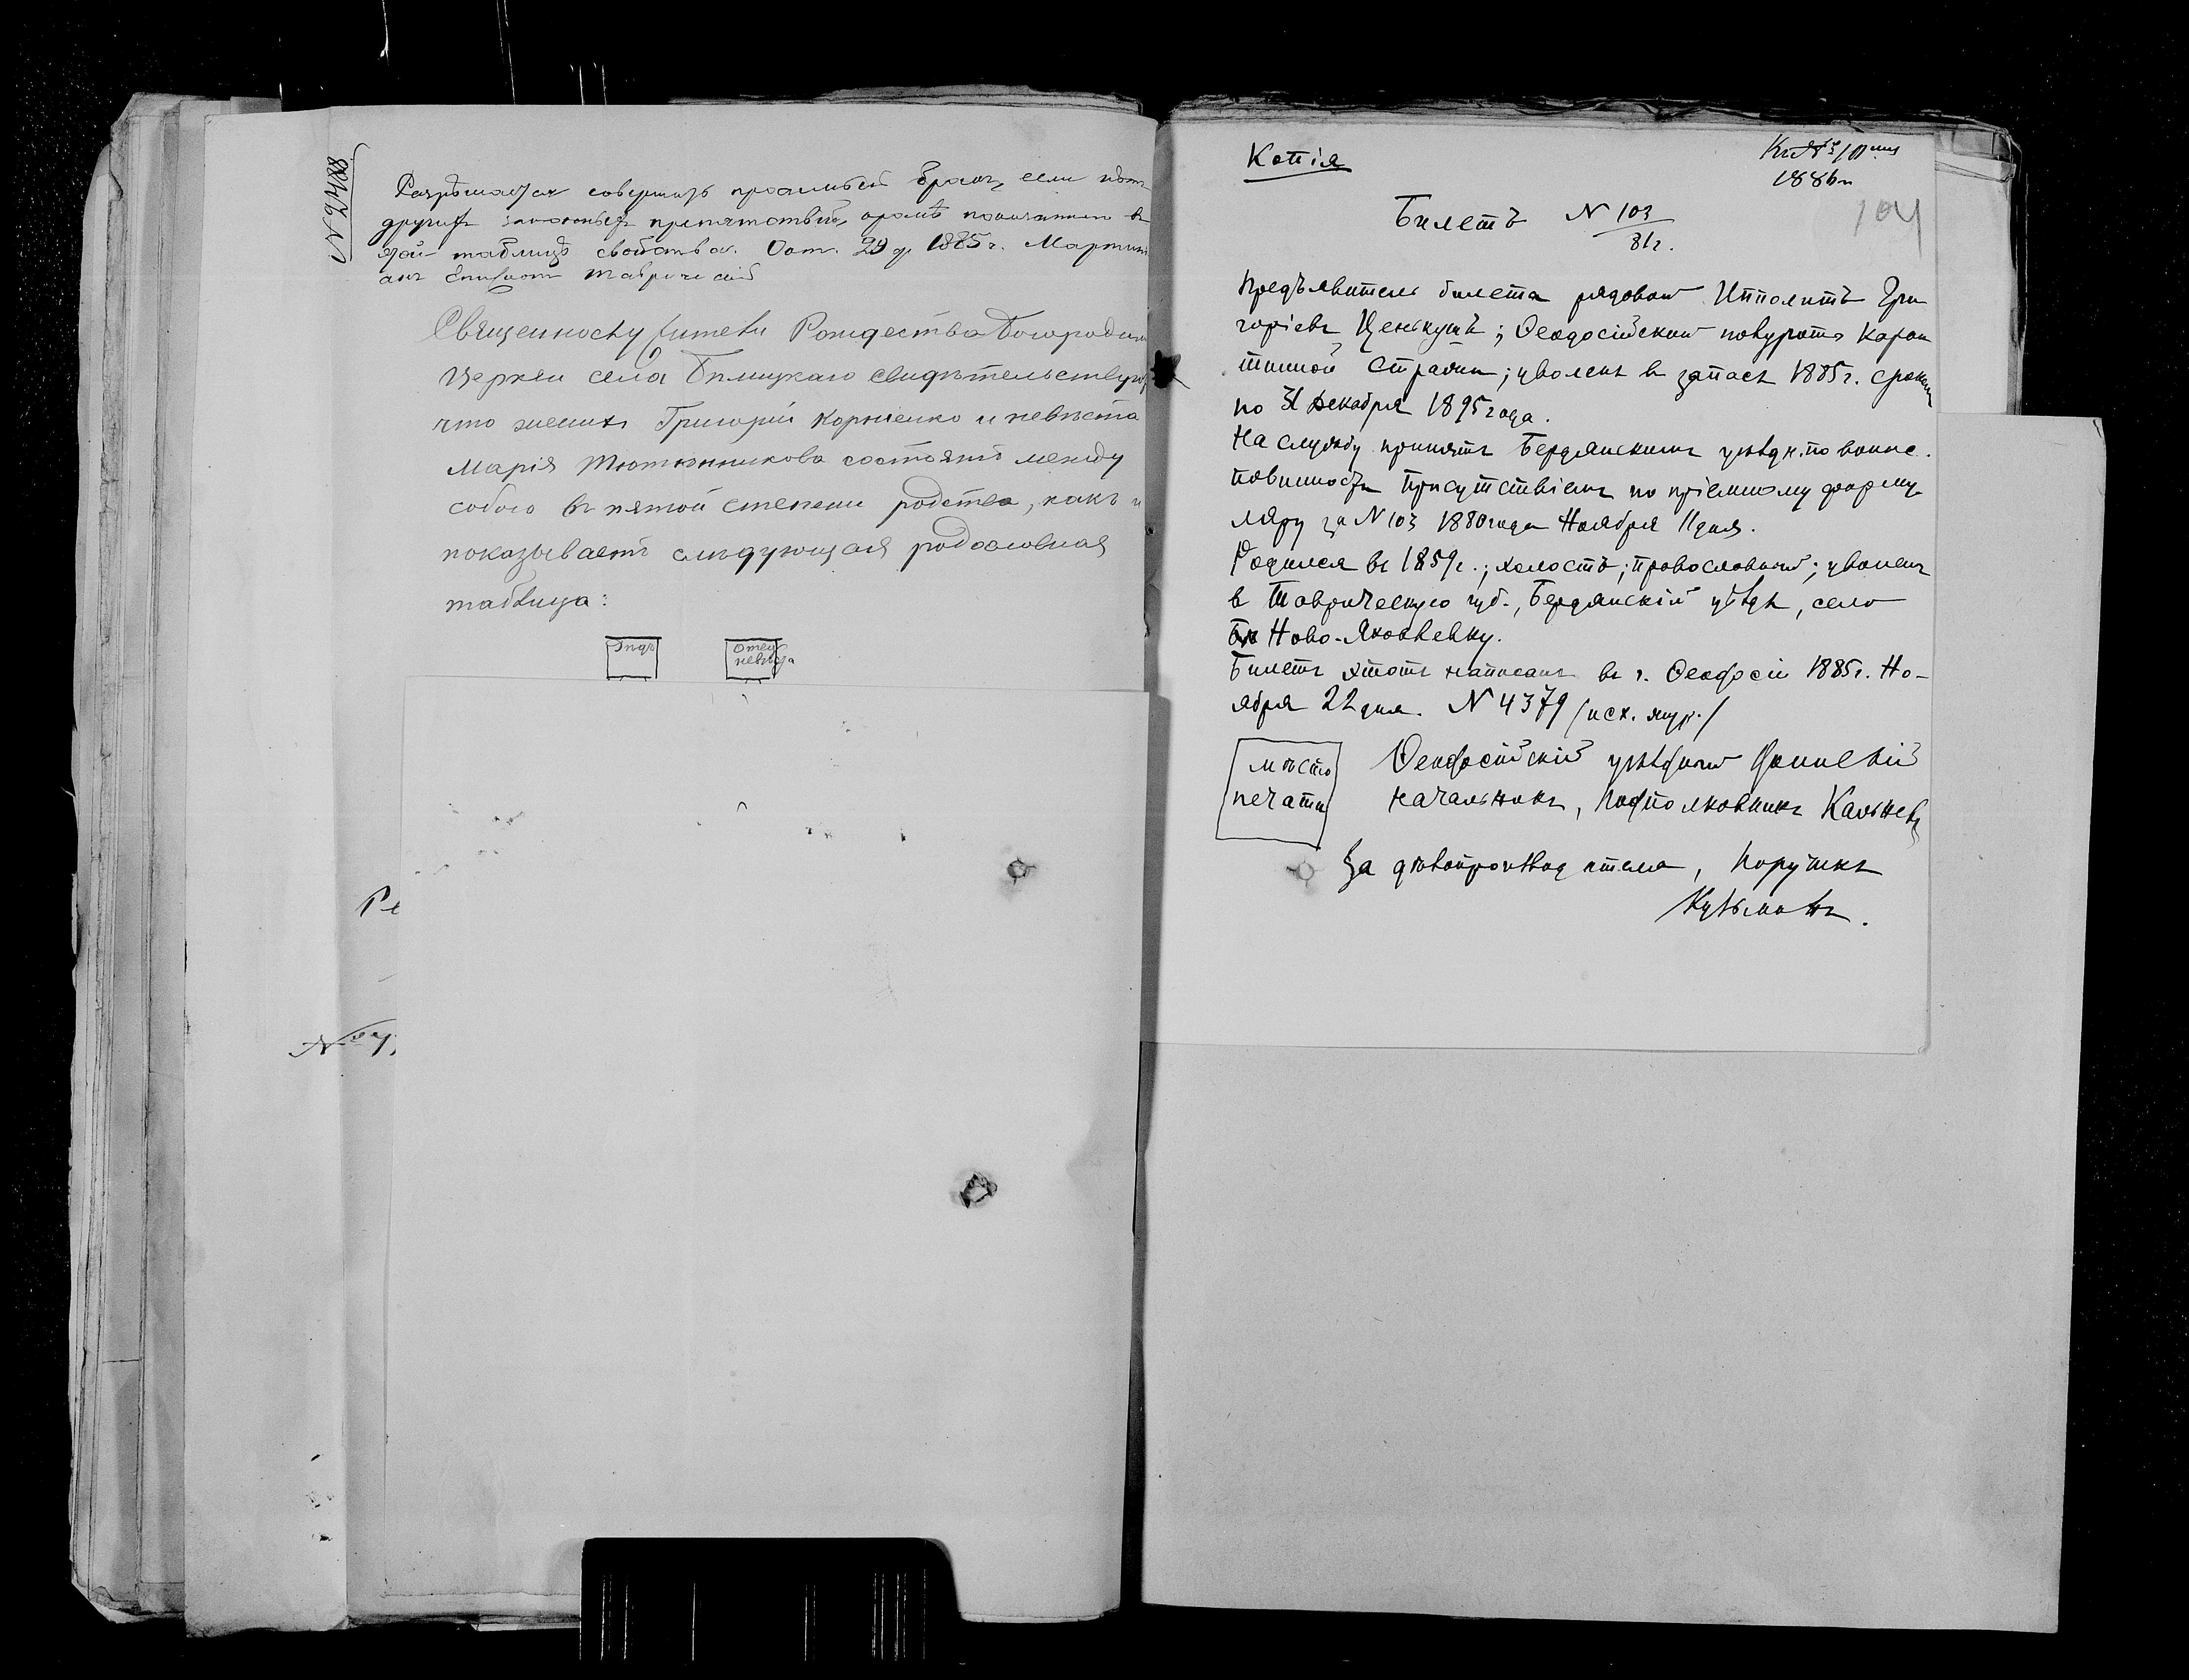 N 2488.
Разрѣшается совершить просимый бракъ, если нѣтъ
другихъ законныхъ препятствій, кромѣ показаннаго въ
сей таблицѣ свойства. Окт. 29 д. 1885 г. Мартині
анъ Епископъ Таврическій
Священнослужители Рождества Богородичн
Церкви села Бѣлицкаго свидѣтельствуютъ
что женихъ Григорій Корніенко и невѣста
Марія Тютюнникова состоятъ между
собою въ пятой степени родства, какъ и
показываетъ слѣдующая родословная
таблица:
Отецъ
невѣсты
Ре
№ 4,
Копія
1886 г.
104
Билетъ N 103
81 г.
Предъявитель билета рядовой Ипполитъ Гри
горіевъ Ценькушъ; Ѳеодосійской полуроты Каран
тинной Стражи; уволенъ въ запасъ 1885 г. срокомъ
по 31 Декабря 1895 года.
На службу принятъ Бердянскимъ уѣздн. по воинс.
повинности Присутствіемъ по пріемному форму
ляру за N 103 1880 года Ноября 11 дня.
Родился въ 1859 г.; холостъ; православный; уволенъ
в Таврическую губ., Бердянскій уѣздъ, село
Ново-Яковлевку.
Билетъ этотъ написанъ въ г. Ѳеодосіи 1885 г. Но-
ября 22 дня. N 4379 /исх. жур./
мѣсто
печати
Ѳеодосійскій уѣздный Воинскій
начальникъ, Подполковникъ Кальневъ
За дѣлопроизводителя, Поручикъ
Кузьминъ.